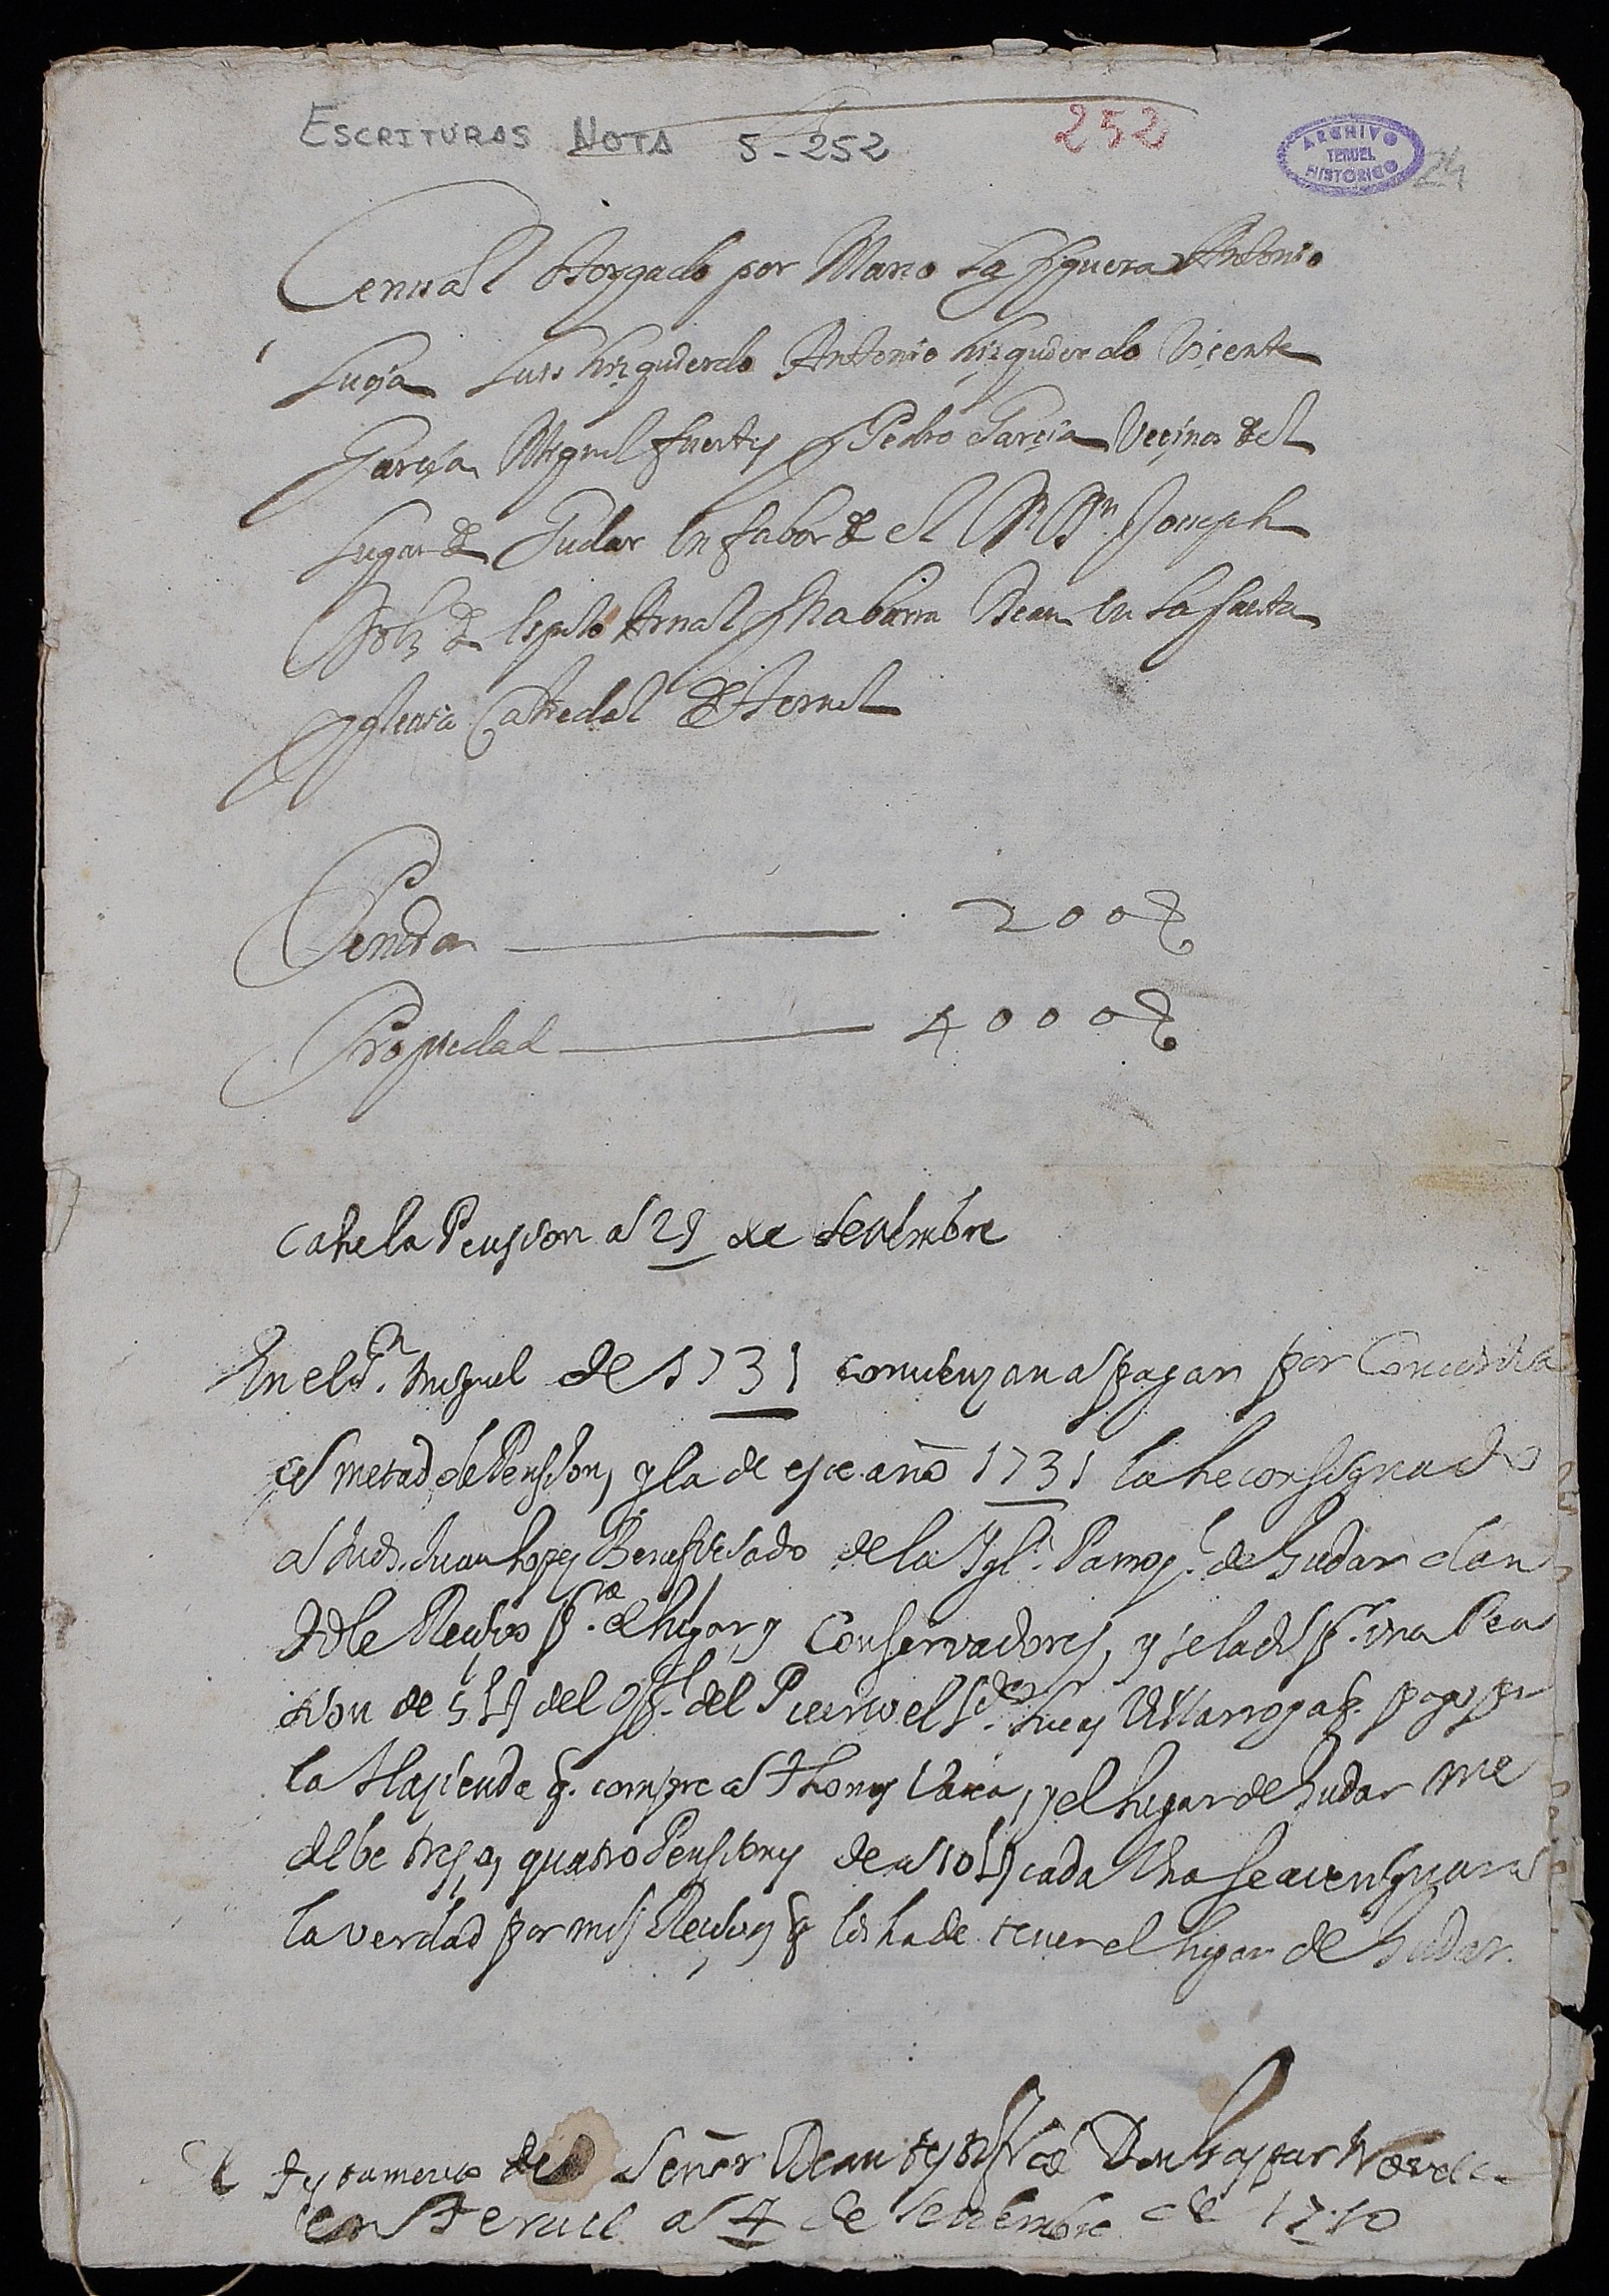 ESCRITURAS NOTA 5-252 252
ARCHIVO
TERUEL
HISTORICO
24
Censal Otorgado por Marco La Figuera Antonio
Luis Yzquierdo Antonio Yzquierdo Vicente
Garcia Miguel fuertes y Pedro Garcia Vecinos del
Lugar de Gudar en fabor de el Joseph
de Arnal Dean en la santa
Yglesia Catredal de Teruel
200
Propiedad 4000
Cahe la Pension a 29 de Setiembre
En el Sn. Miguel de 1731 comienzan a pagar por Concordia
metad de Pension, y la de este año 1731 la he consignado
a Juan Lopez Beneficiado de la Igla. Parroql. de Gudar dan
dole Recivo pa. el lugar, y Conservadores, y se la di pr. una Pen
sion de 5 del del Villarroya q. pago pr
la Hasienda q. compre a Thomas, y el lugar de Gudar me
debe tres, o quatro Pensiones de a 10 cada una se averiguara
la verdad por mis Recivos q los ha de tener el lugar de Gudar.
El testamento del Señor Dean testifico Don Gaspar
en Teruel a 4 de Setiembre de 1710